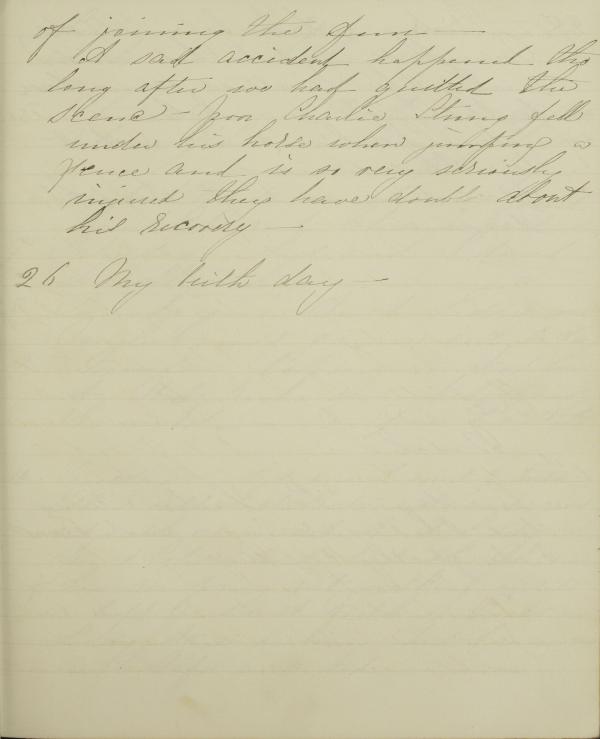 of joining the fun —
A sad accident happened tho
long after we had quitted the
scene — poor Charlie Strong fell
under his horse when jumping a
fence and is so very seriously
injured they have doubt about
his recovery —
26 My birth day —